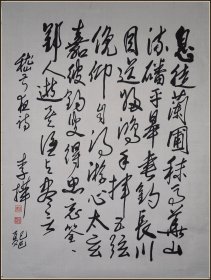 息徒蘭圃秣馬華山
流磻平皋垂釣長川
目送歸鴻手揮五弦
俯仰自得游心太玄
嘉彼釣叟得魚忘筌
郢人逝矣誰與盡言
詩 李鐸